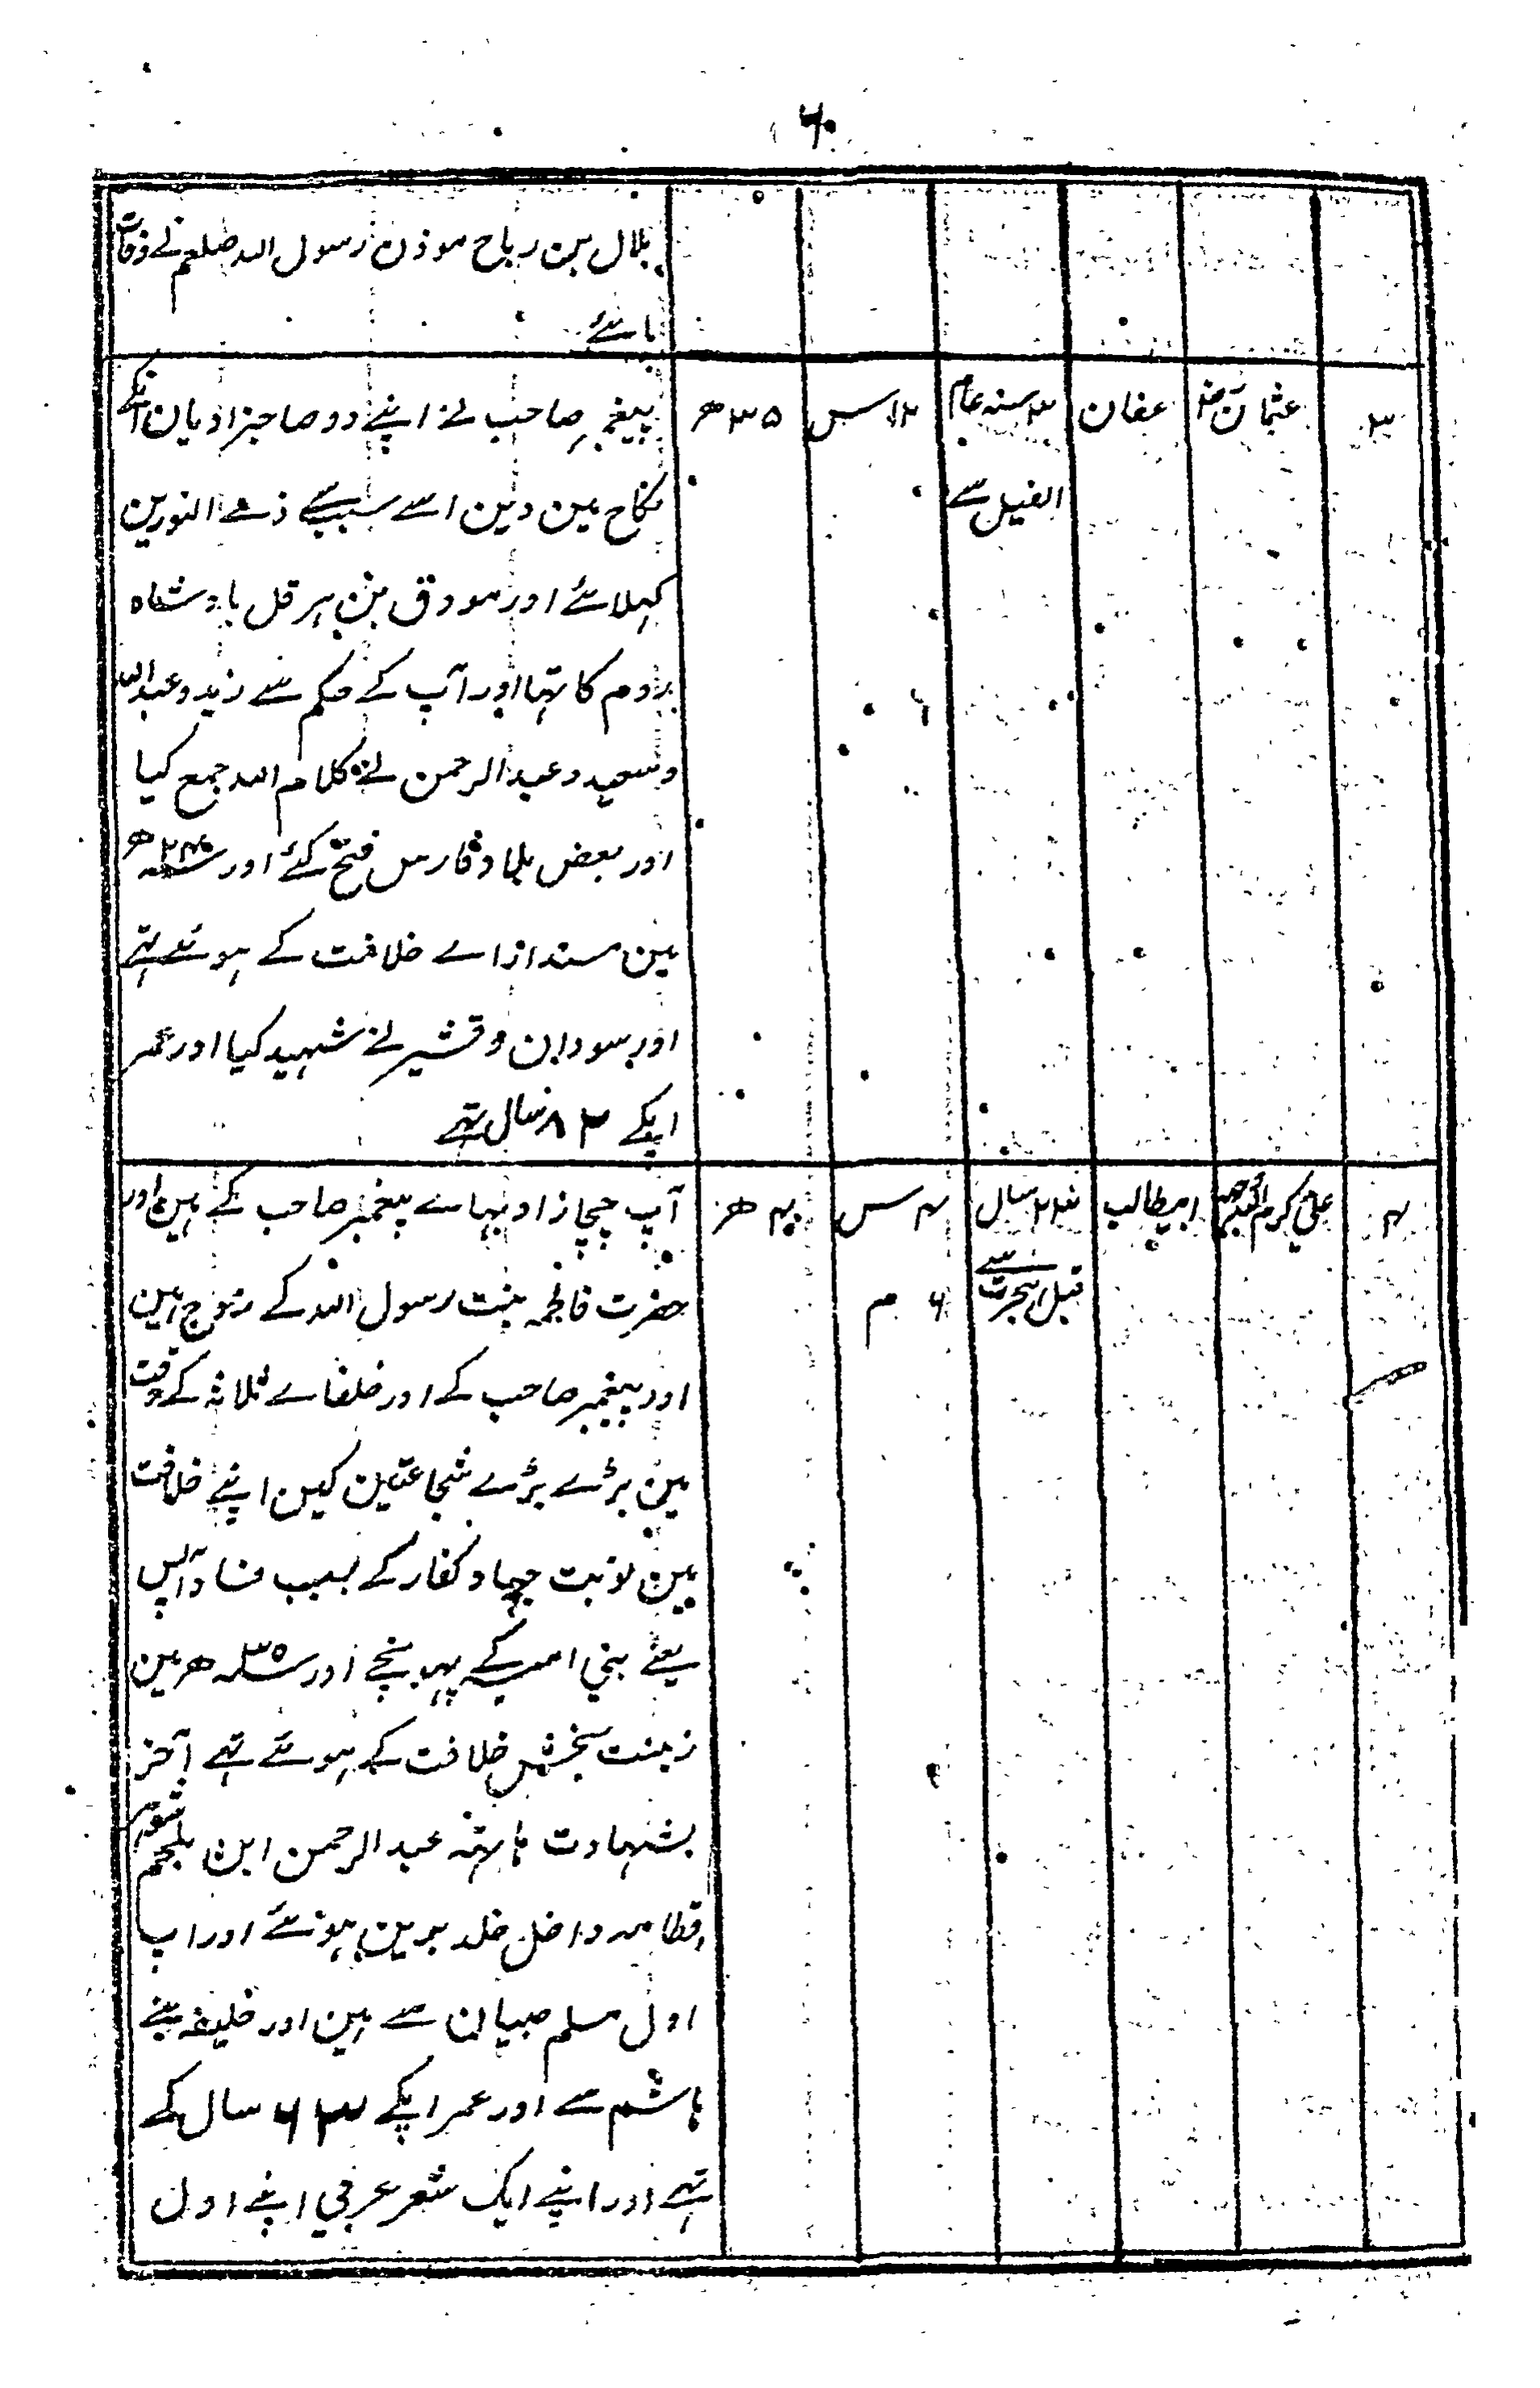 ۶۰
بلال بن رباح موذن رسول اللہ صلعم نے وفات
پائے
۳
عثمان رض
عفان
۳ سنہ عام
الفیل سے
۱۲ س
۳۵ ھ
پیغمبر صاحب نے اپنے دو صاحبزادیان انکے
نکاح مین دین اسے سبب سے ذے النورین
کہلائے اور مورق بن ہرقل بادشاہ
روم کا تہا اور آپ کے حکم سے زید و عبد اللہ
و سعید و عبد الرحمن نے کلام اللہ جمع کیا
اور بعض بلاد فارس فتح کئے اور
مین مسند ازاے خلافت کے ہوئے تہے
اور سودان و قشیر نے شہید کیا اور عمر
اپکے ۸۲ سال تہے
۴
علی کرم اللہ وجہہ
ابیطالب
۲۲ سال
قبل ہجرت سے
۴ س
۶ م
۴۰ ھ
آپ چچازاد بہاے پیغمبر صاحب کے ہین اور
حضرت فاطمہ بنت رسول اللہ کے زوج ہین
اور پیغمبر صاحب کے اور خلفاے ثلاثہ کے وقت
مین بڑے بڑے شجاعتین کین اپنے خلافت
مین نوبت جہاد کفار کے بسبب فساد آپس
یعنے بنی امیہ کے پہونچے اور سنہ ۳۵ ھ مین
زینت بخش خلافت کے ہوئے تہے آخر
بشہادت ہاتہہ عبد الرحمن ابن ملجم شوہر
قطامہ داخل خلد برین ہوئے اور اپ
اول مسلم صبیان سے ہین اور خلیفہ بنے
ہاشم سے اور عمر اپکے ۶۳ سال کے
تہے اور اپنے ایک شعر عربی اپنے اول